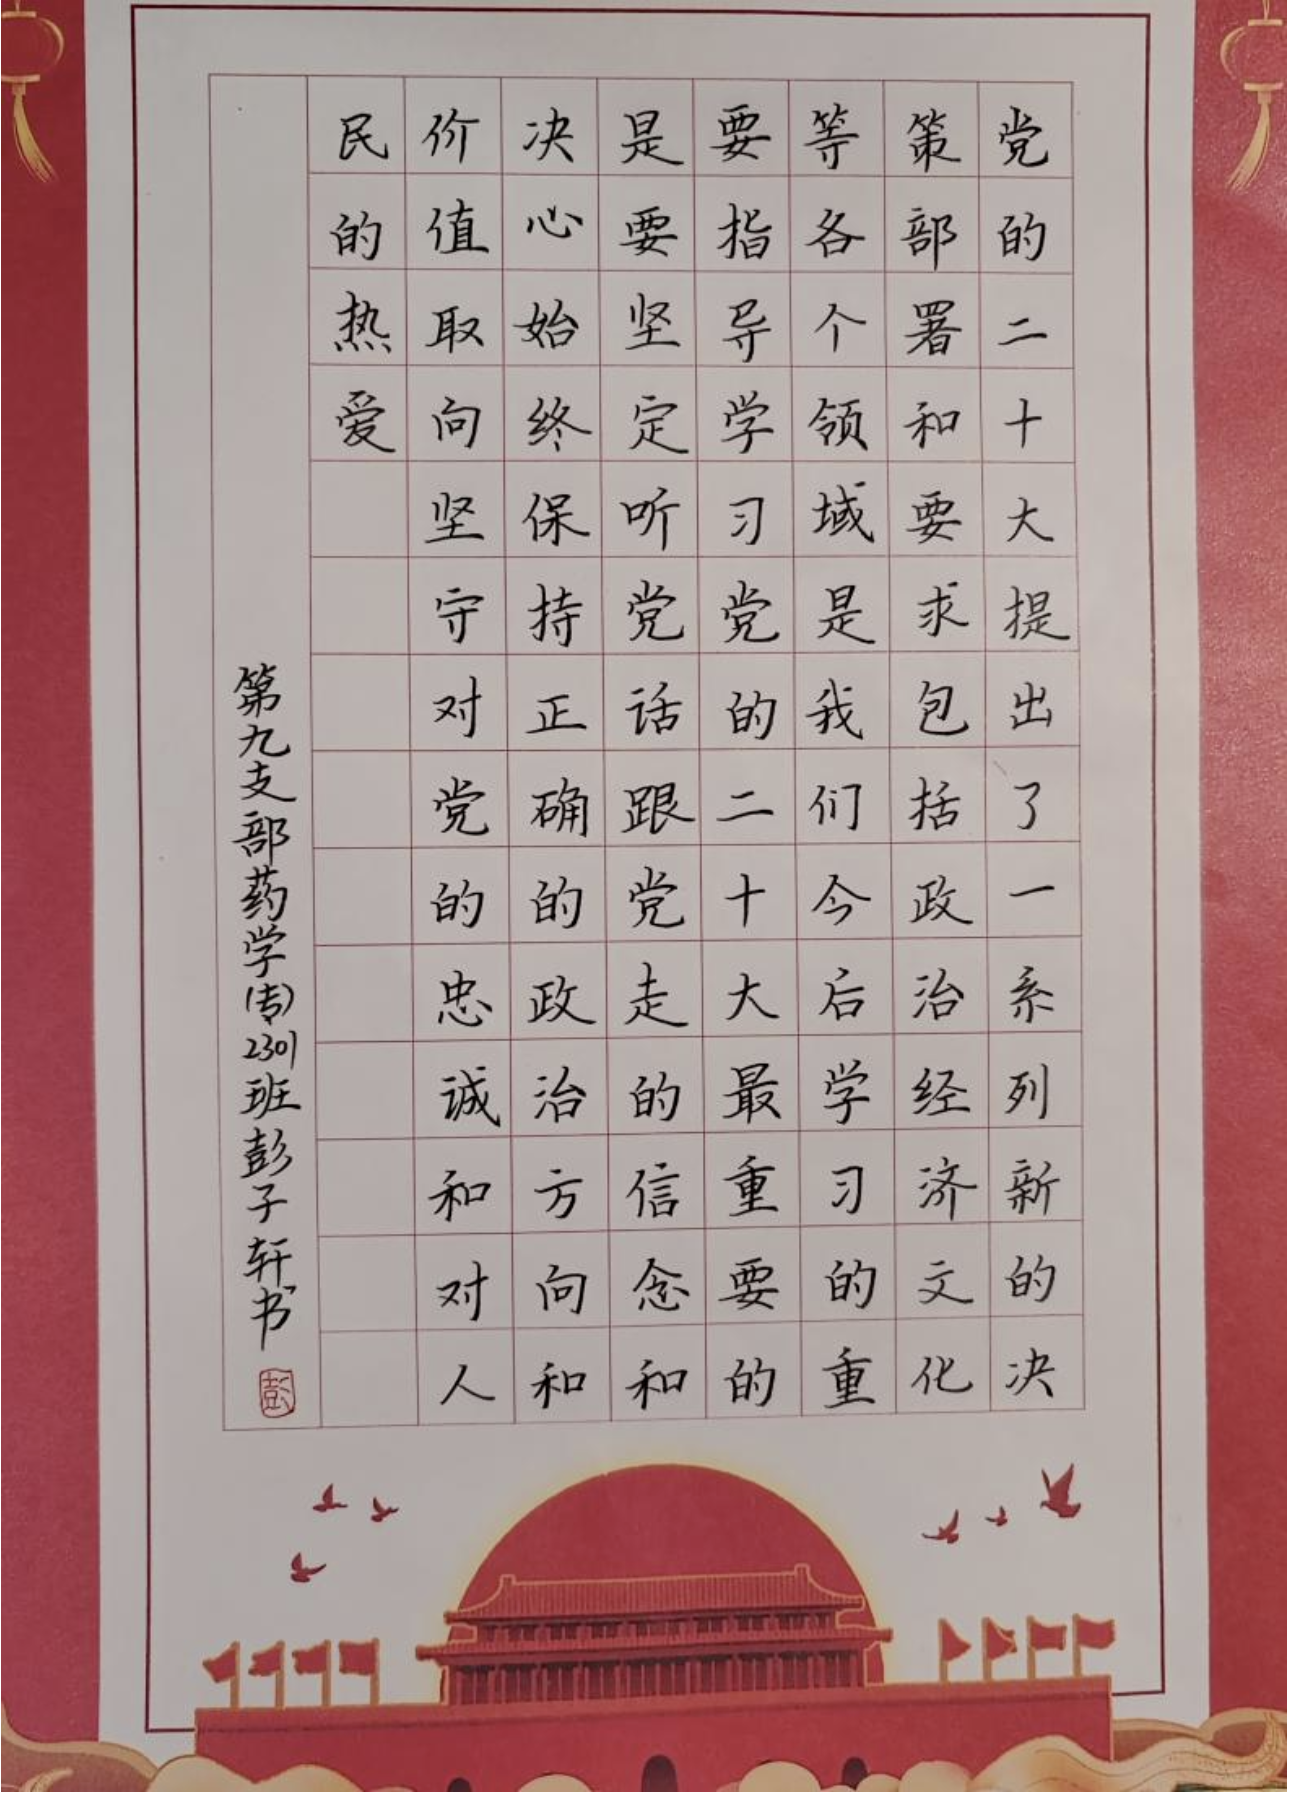 党的二十大提出了一系列新的决
策部署和要求包括政治经济文化
等各个领域是我们今后学习的重
要指导学习党的二十大最重要的
是要坚定听党话跟党走的信念和
决心始终保持正确的政治方向和
价值取向坚守对党的忠诚和对人
民的热爱
第九支部药学(专)2301班彭子轩书
彭